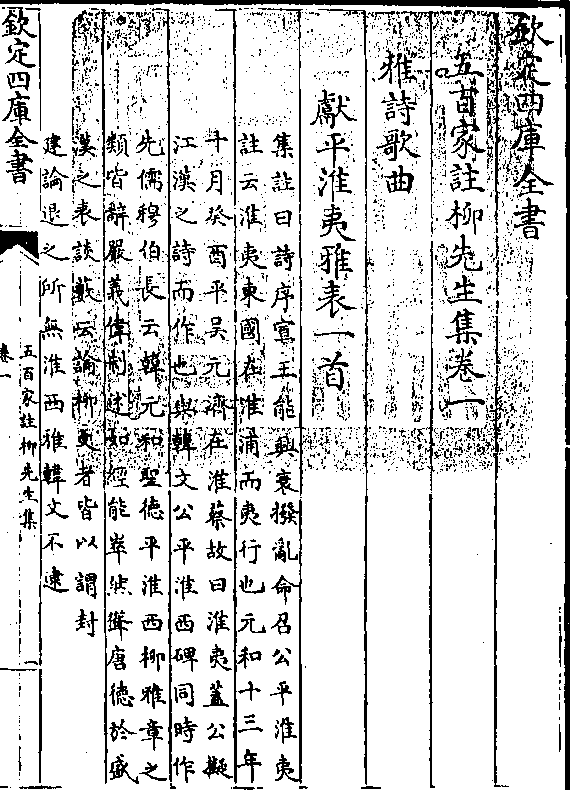 欽定四庫全書
五百家註柳先生集卷一
雅詩歌曲
獻平淮夷雅表一首
集註曰詩序宣王能興衰撥亂命召公平淮夷
註云淮夷東國在淮浦而夷行也元和十三年
十月癸酉平吳元濟在淮蔡故曰淮夷蓋公擬
江漢之詩而作也與韓文公平淮西碑同時作
先儒穆伯長云韓元和聖德平淮西柳雅章之
類皆辭嚴義偉制述如經能崒然聳唐德於盛
漢之表談藪云論柳文者皆以謂封
建論退之所無淮西雅韓文不逮
欽定四庫全書
五百家註柳先生集
卷一
一